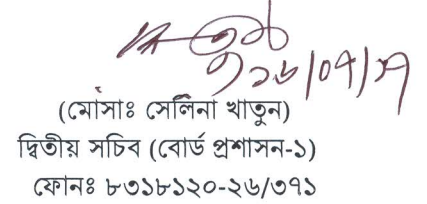 (মোসাঃ সেলিনা খাতুন)
দ্বিতীয় সচিব (বোর্ড প্রশাসন-১)
ফোনঃ ৮৩১৮১২০-২৬/৩৭১